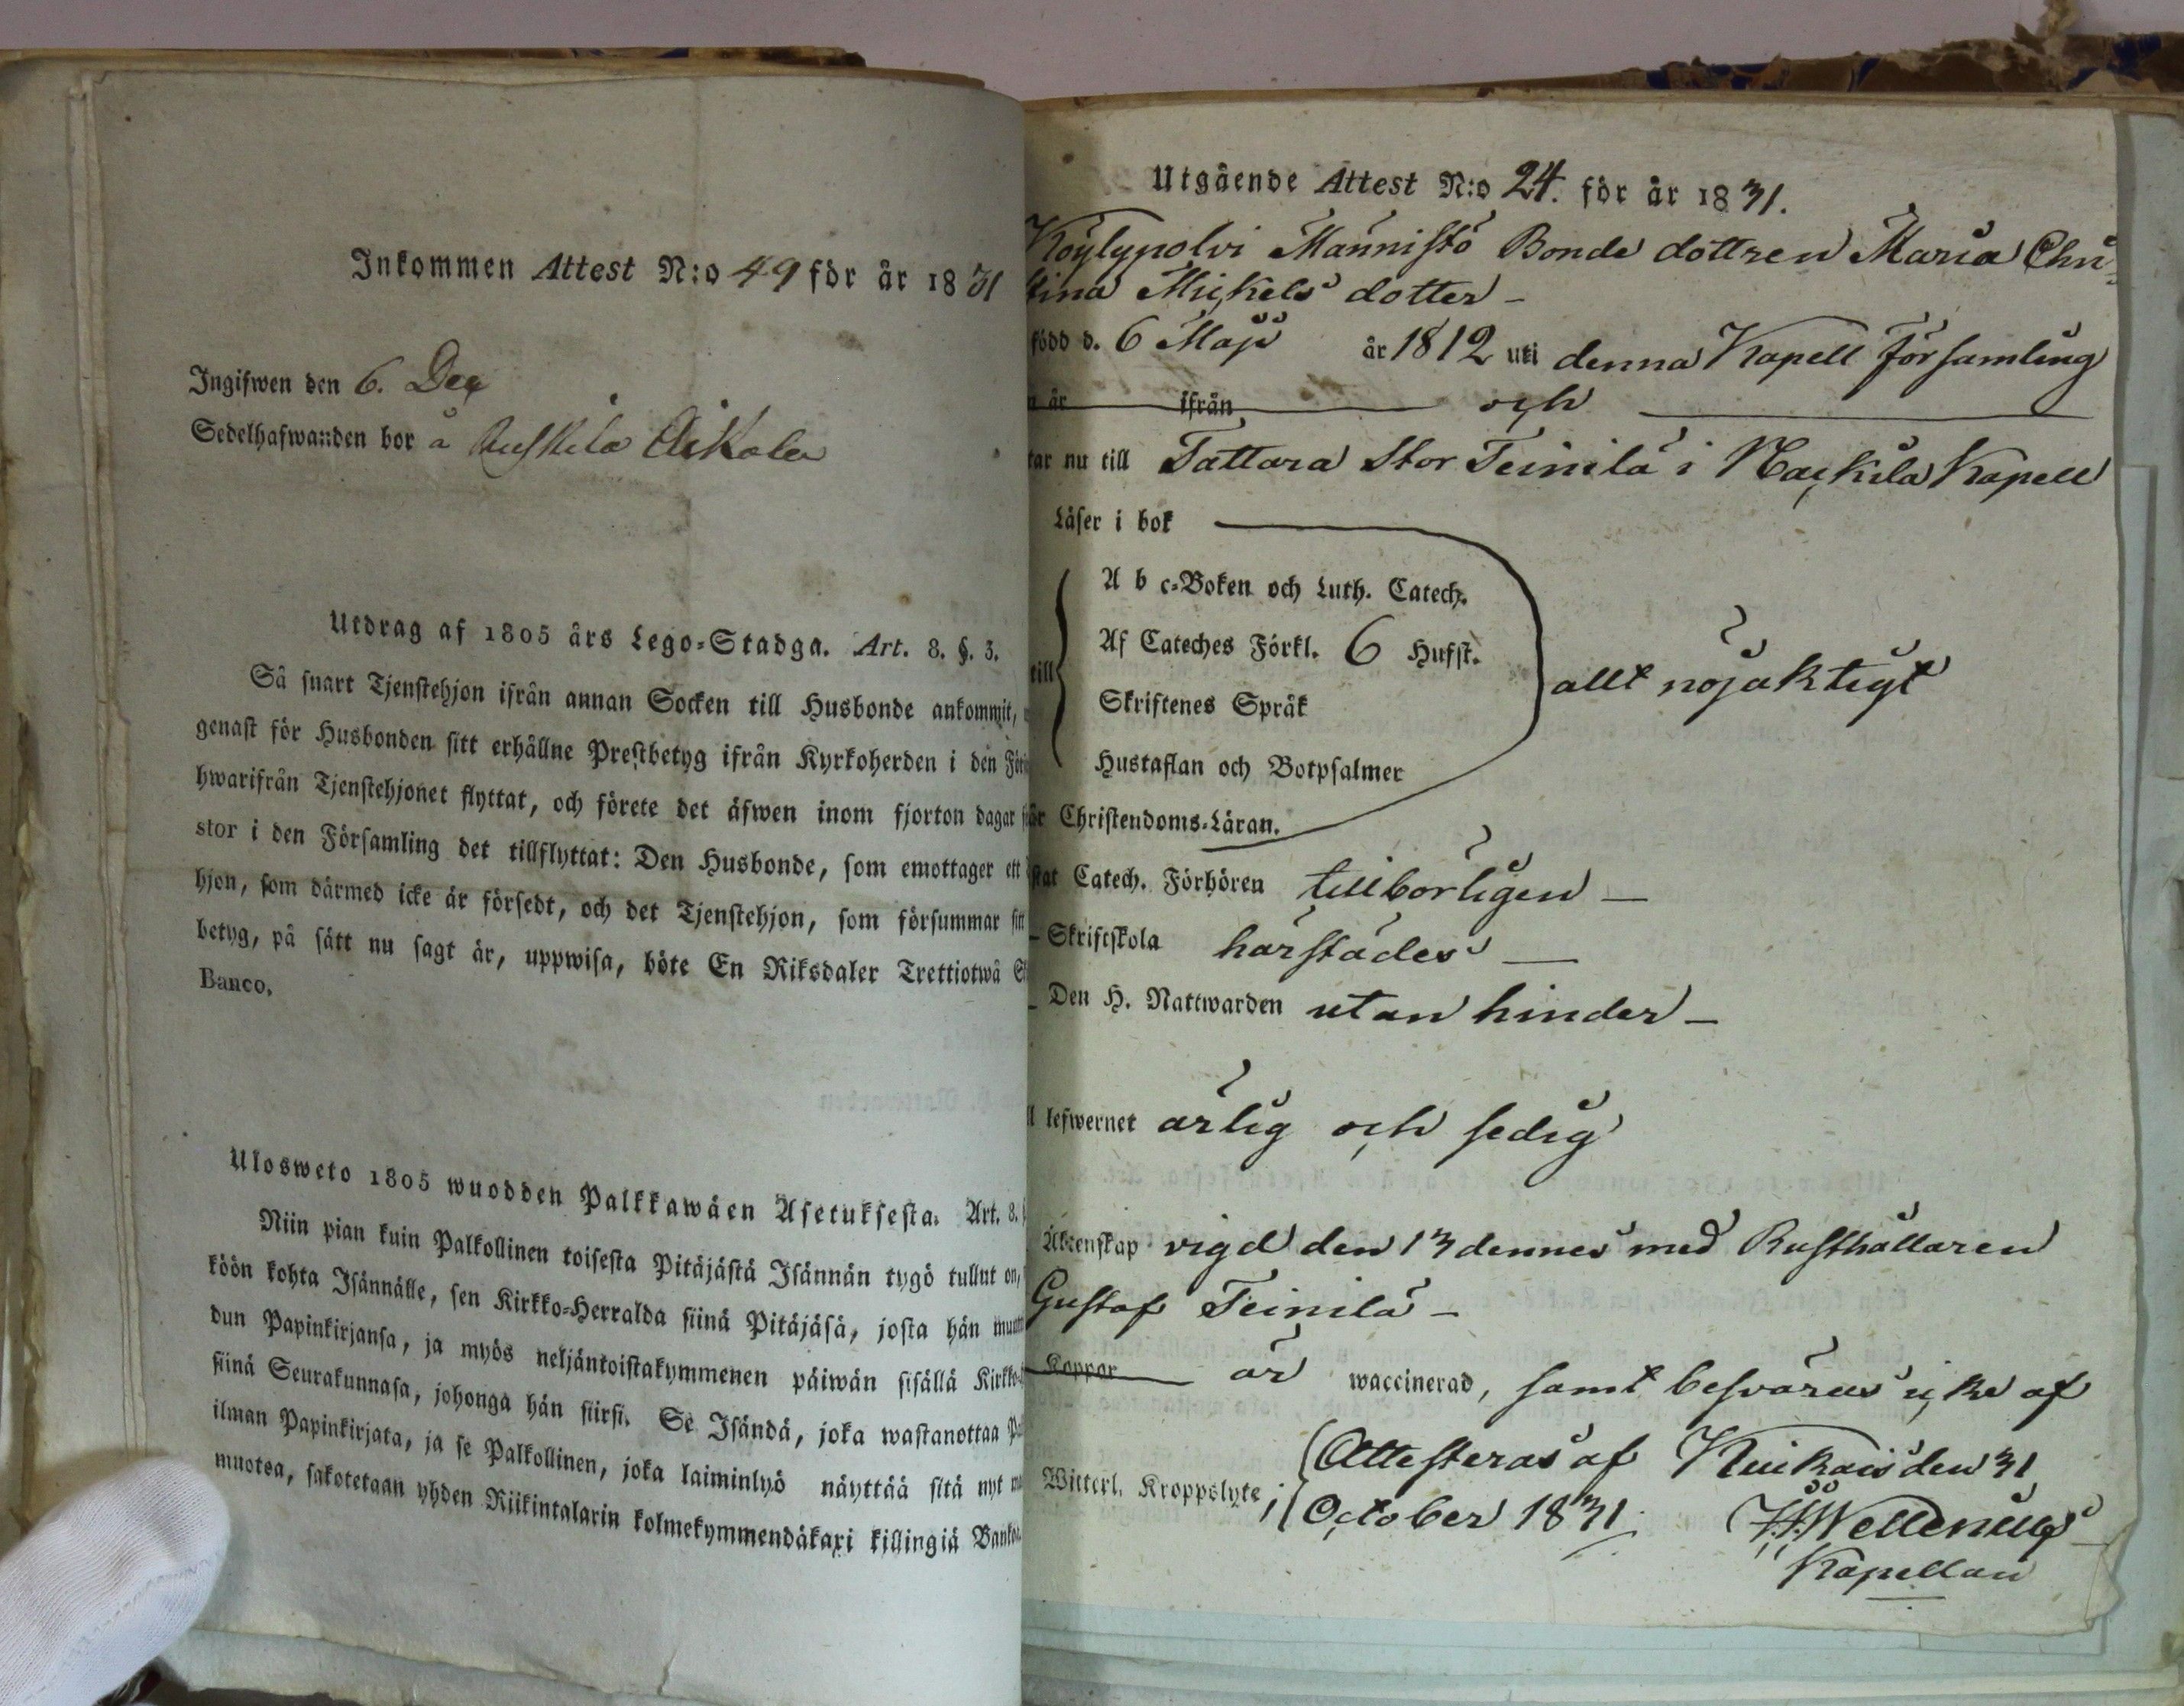 Inkommen Attest N:o 49 för år 1831
Ingifwen den 6. Dec
Sedelhafwanden bor å
Utdrag af 1805 års Lego-Stadga. Art. 8. §. 3.
Så snart Tjenstehjon ifrån annan Socken till Husbonde ankommit,
genast för Husbonden sitt erhållne Prestbetyg ifrån Kyrkoherden i den För
hwarifrån Tjenstehjonet flyttat, och förete det äfwen inom fjorton dagar
stor i den Församling det tillflyttat: Den Husbonde, som emottager ett
hjon, som därmed icke är försedt, och det Tjenstehjon, som försummar sitt
betyg, på sätt nu sagt är, uppwisa, böte En Riksdaler Trettiotwå
Banco.
Ulosweto 1805 wuodden Palkkawäen Asetuksesta. Art. 8.
Niin pian kuin Palkollinen toisesta Pitäjästä Isännän tygö tullut on,
köön kohta Isännälle, sen Kirkko-Herralda siinä Pitäjäsä, josta hän muutt
dun Papinkirjansa, ja myös neljäntoistakymmenen päiwän sisällä Kirkko
siinä Seurakunnasa, johonga hän siirsi. Se Isändä, joka wastanottaa
ilman Papinkirjata, ja se Palkollinen, joka laiminlyö näyttää sitä nyt
muotoa, sakotetaan yhden Riikintalarin kolmekymmendäkaxi killingiä Banko.
Utgående Attest N:o 24. för år 1831.
Köylypolvi Männistö Bonde dottren Maria Chri-
stina Mickels dotter –
född d. 6 Maji år 1812 uti denna Kapell Församling
n år ifrån och
tar nu till Tattara Stor Teinilä i Nackila Kapell
Läser i bok
A b c-Boken och Luth. Catech.
Af Cateches Förkl. 6 Hufst.
till
Skriftenes Språk
allt nöjaktigt
Hustaflan och Botpsalmer
är Christendoms-Läran.
stat Catech. Förhören tillbörligen –
– Skriftskola härstädes –
– Den H. Nattwarden utan hinder –
l lefwernet ärlig och sedig
Äktenskap vigd den 13 dennes med Rusthållaren
Gustaf Teinilä –
Koppor är waccinerad, samt besväras icke af
Witterl. Kroppslyte; Attesteras af Kiukais den 31
October 1831.
Kapellan